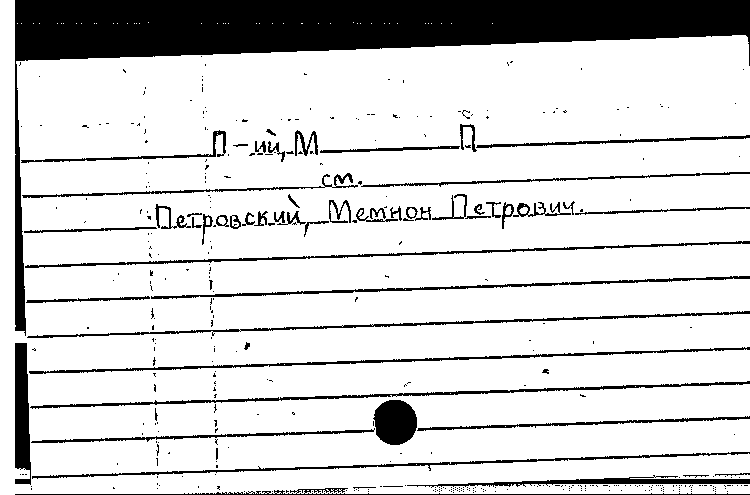 П-ий, М П
см.
Петровский, Мемнон Петрович.